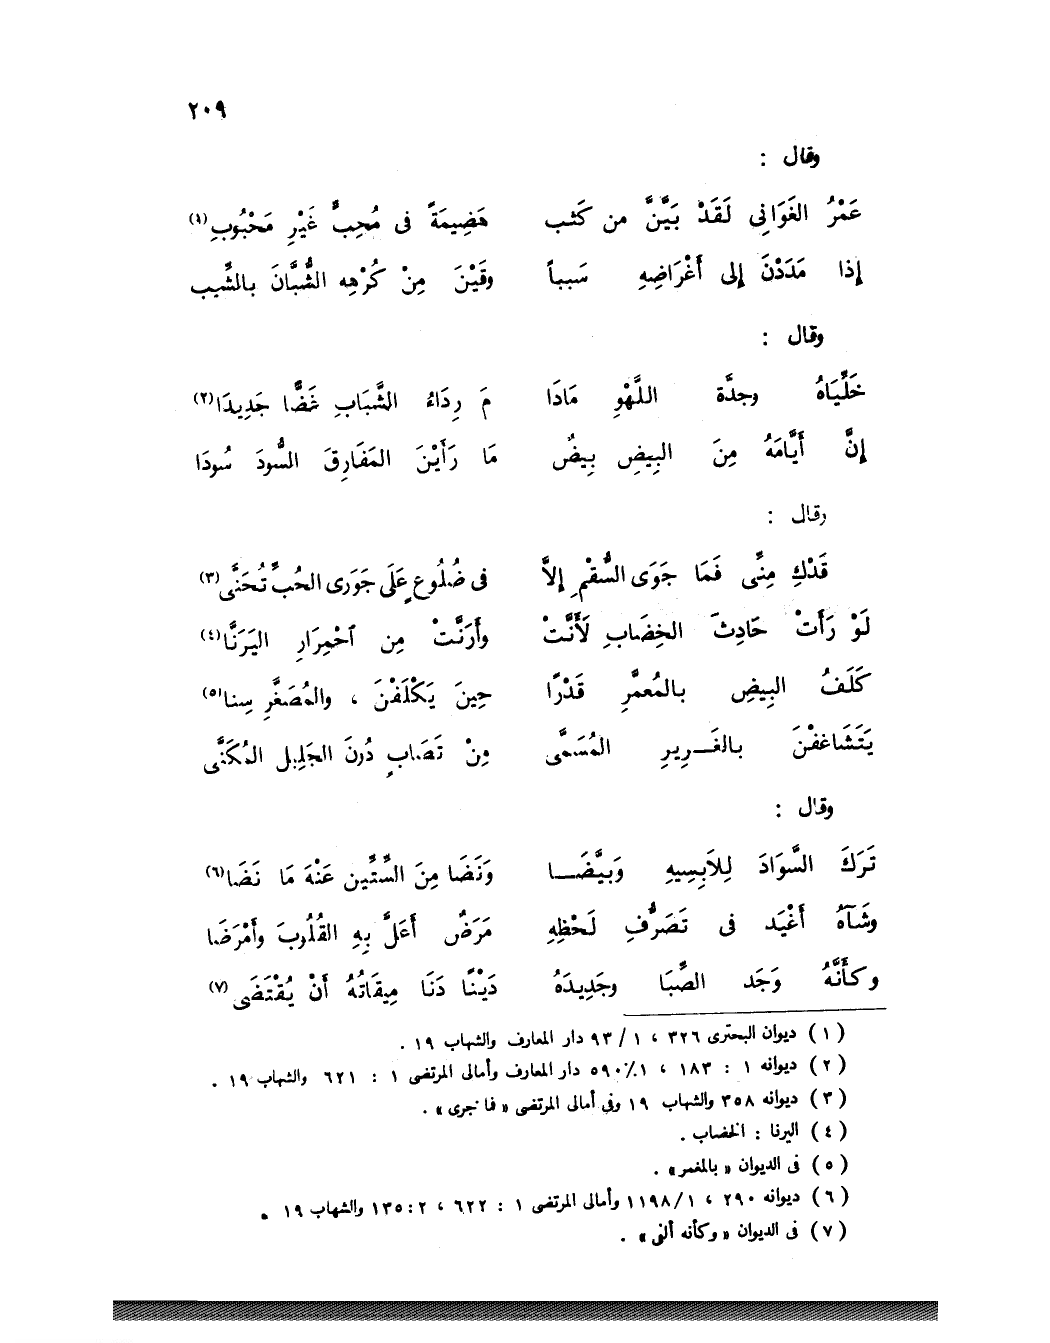 ٢٠٩
وقال :
عَمْرُ الغَوَانِى لَقَدْ بَيَّنَّ من كَثب هَضِيمَةً فى مُحِبٍّ غَيْرِ مَحْبُوبِ(١)
إذا مَدَدْنَ إلى أَغْرَاضِهِ سَبباً وقَيْنَ مِنْ كُرْهِه الشُّبَّانَ بالشِّيب
وقال :
خَلِّيَاهُ وجدَّة اللَّهْوِ مَادَا مَ رِدَاءُ الشَّبَابِ غَضًّا جَدِيدَا(٢)
إنَّ أَيَّامَهُ مِنَ البِيضِ بِيضٌ مَا رَأَيْنَ المَفَارِقَ السُّودَ سُودَا
وقال :
قَدْكِ مِنِّى فَمَا جَوَى السُّقْمِ إلاَّ فى ضُلُوعٍ عَلَى جَوَى الحُبِّ تُحَنَّى(٣)
لَوْ رَأَتْ حَادِثَ الخِضَابِ لَأَنَّتْ وأَرَنَّتْ مِن ٱحْمِرَارِ اليَرَنَّا(٤)
كَلَفُ البِيضِ بالمُعمَّرِ قَدْرًا حِينَ يَكْلَفْنَ ، والمُصَغَّرِ سِنا(٥)
يَتَشَاغفْنَ بالغَــرِيرِ المُسَمَّى مِنْ تَصَابٍ دُونَ الجَلِيلِ المُكَنَّى
وقال :
تَرَكَ السَّوَادَ لِلاَبِسِيهِ وَبَيَّضَــا وَنَضَا مِنَ السِّتِّين عَنْهُ مَا نَضَا(٦)
وشَآهُ أَغْيَد فى تَصَرُّفِ لَحْظِهِ مَرَضٌ أَعَلَّ بِهِ القُلُوبَ وأَمْرَضَا
وكأَنَّهُ وَجَد الصِّبَا وجَدِيدَهُ دَيْنًا دَنَا مِيقَاتُهُ أَنْ يُقْتَضَى(٧)
(١) ديوان البحترى ٣٢٦ ، ١/ ٩٣ دار المعارف والشهاب ١٩ .
(٢) ديوانه ١ : ١٨٣ ، ١/ ٥٩٠ دار المعارف وأمالى المرتضى ١ : ٦٢١ والشهاب ١٩ .
(٣) ديوانه ٣٥٨ والشهاب ١٩ وفى أمالى المرتضى « فا جرى » .
(٤) اليرنا : الخضاب .
(٥) فى الديوان « بالمغمر » .
(٦) ديوانه ٢٩٠ ، ١/ ١١٩٨ وأمالى المرتضى ١ : ٦٢٢ ، ٢ : ١٣٥ والشهاب ١٩ .
(٧) فى الديوان « وكأنه ألفى » .